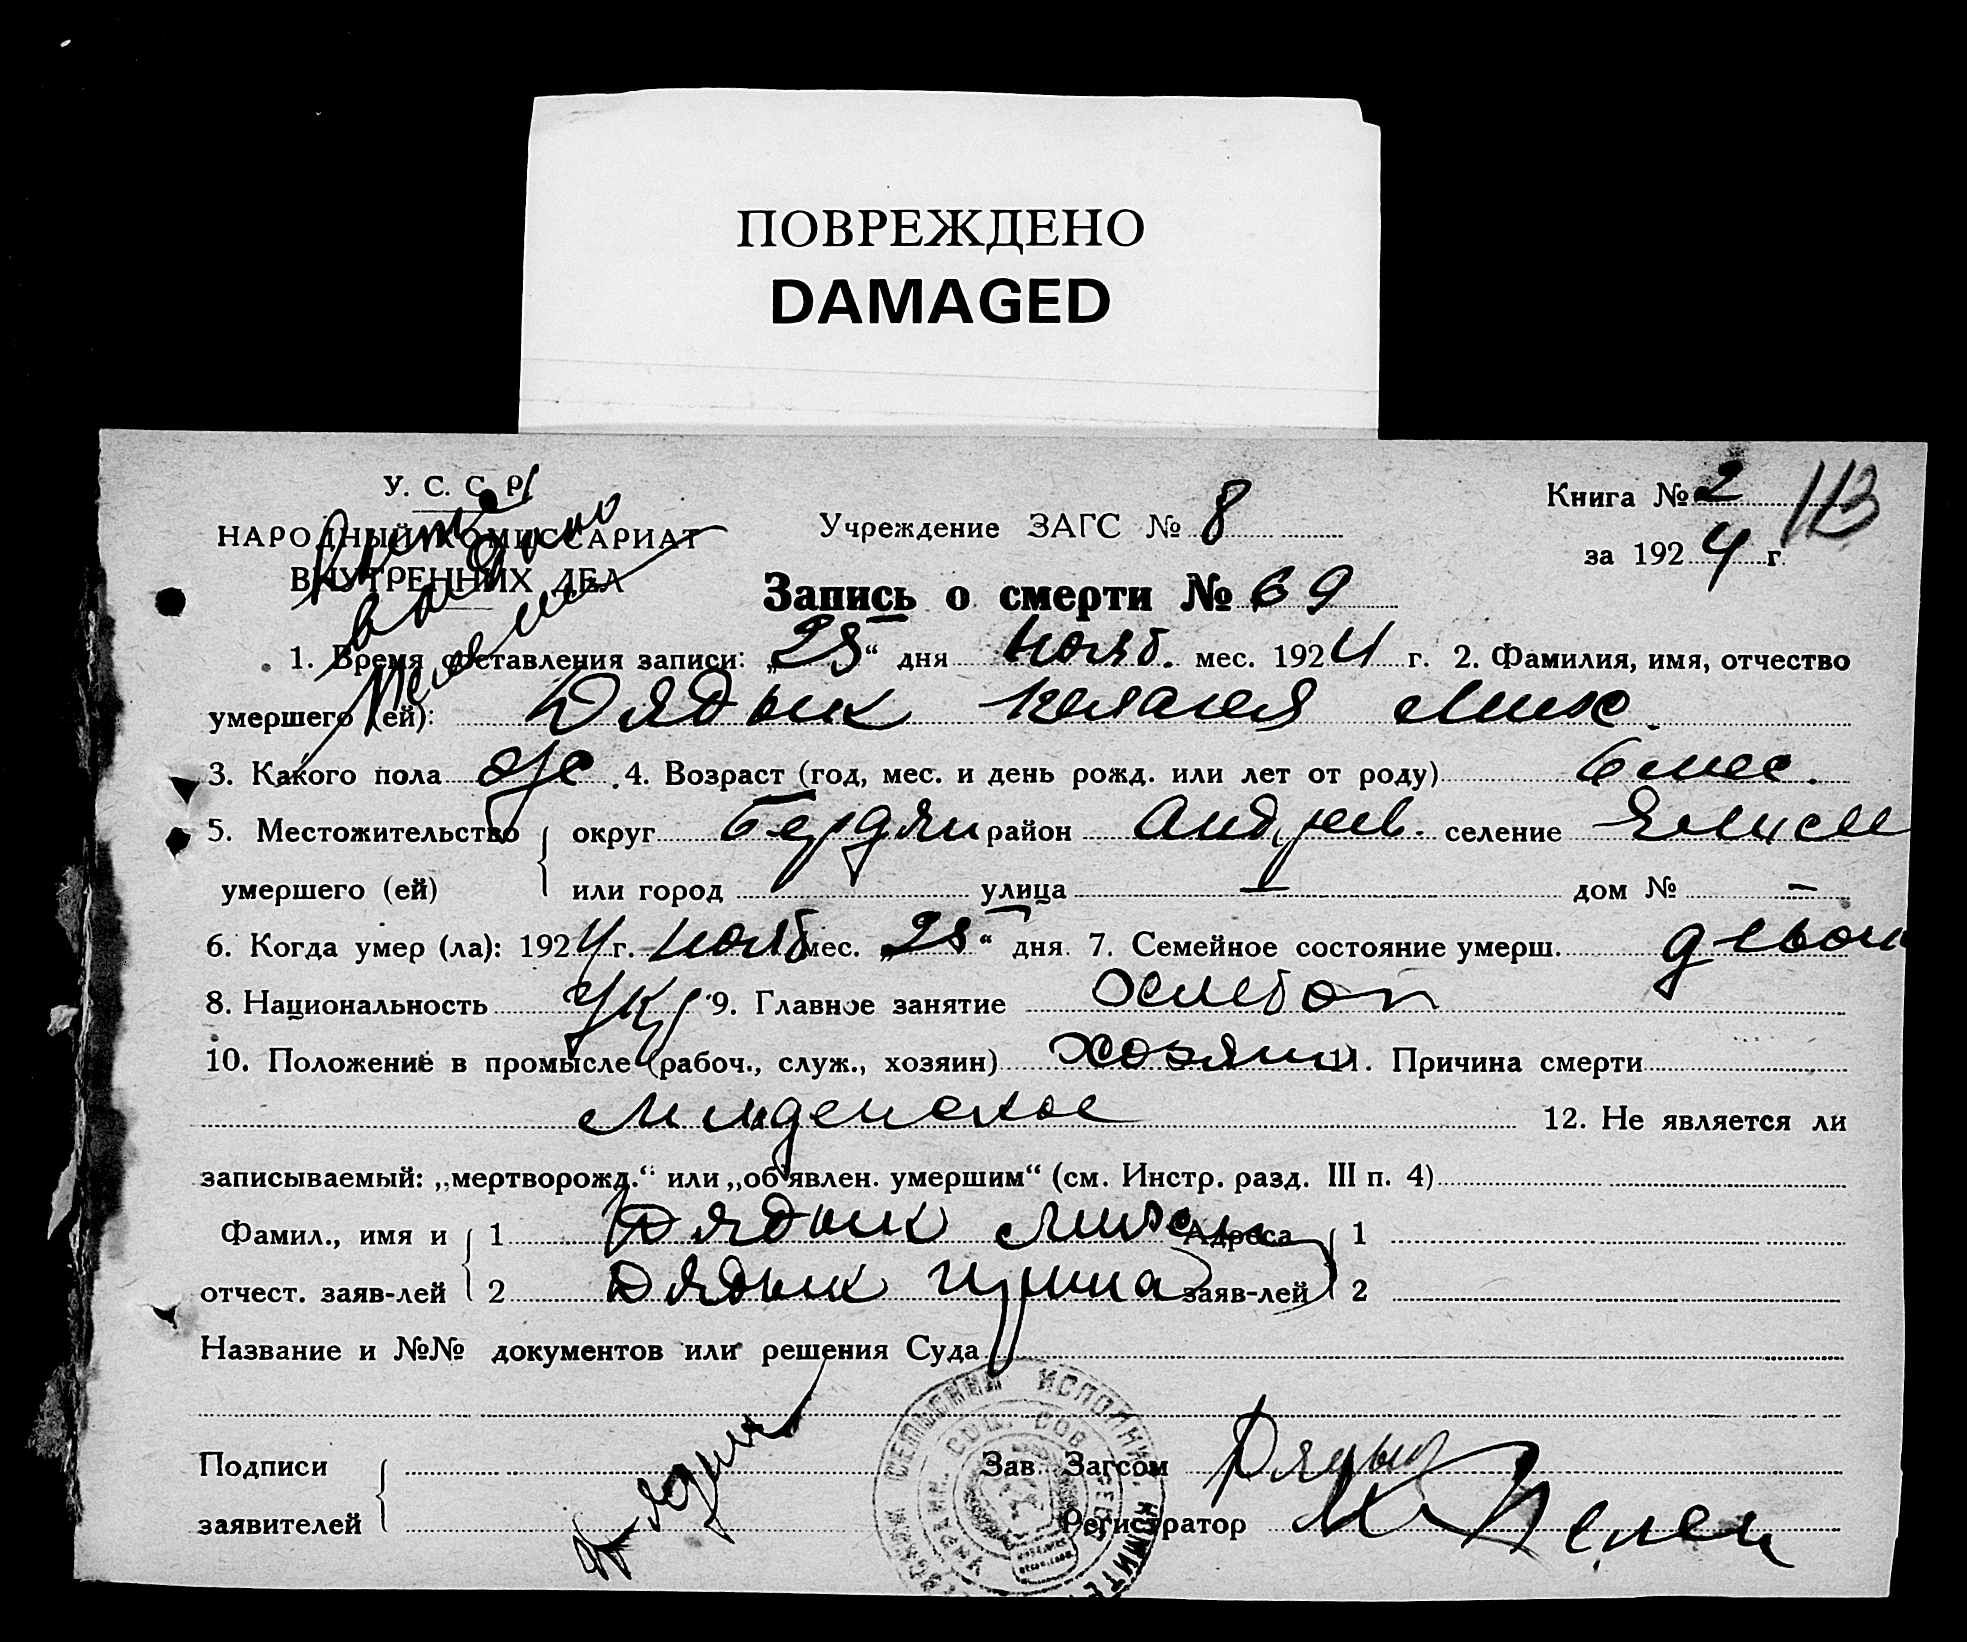 ПОВРЕЖДЕНО
DAMAGED
У. С. С. Р.
НАРОДНЫЙ КОМИССАРИАТ
ВНУТРЕННИХ ДЕЛ
Учреждение ЗАГС № 8
Книга № 2 113
за 1924 г.
Запись о смерти № 69
1. Время составления записи: „28“ дня нояб. мес. 1924 г. 2. Фамилия, имя, отчество
умершего (ей): Дядык Пелагея Мих.
3. Какого пола ж. 4. Возраст (год, мес. и день рожд. или лет от роду) 6 мес.
5. Местожительство округ Бердян район Андреев. селение
умершего (ей) или город улица — дом № —
6. Когда умер (ла): 1924 г. нояб мес. „28“ дня 7. Семейное состояние умерш.
8. Национальность Укр 9. Главное занятие
10. Положение в промысле (рабоч., служ., хозяин) хозяин 11. Причина смерти
младенская 12. Не является ли
записываемый: „мертворожд.“ или „об'явлен. умершим“ (см. Инстр. разд. III п. 4)
Фамил., имя и 1 Дядык Михаил Адреса 1
отчест. заяв-лей 2 Дядык Ирина заяв-лей 2
Название и №№ документов или решения Суда
Подписи Зав. Загсом
заявителей Регистратор